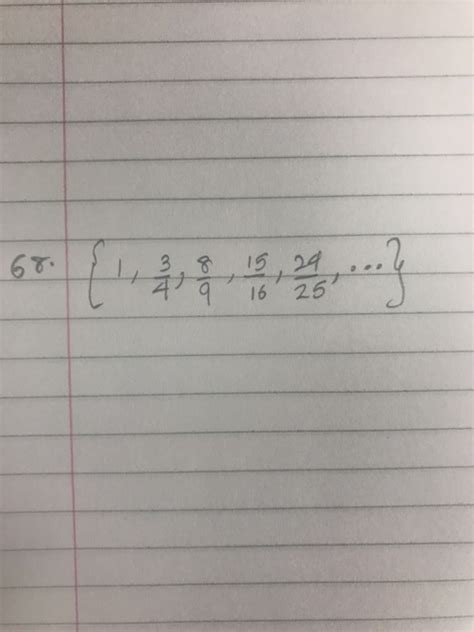 68. { 1, 3/4, 8/9, 15/16, 24/25, ... }